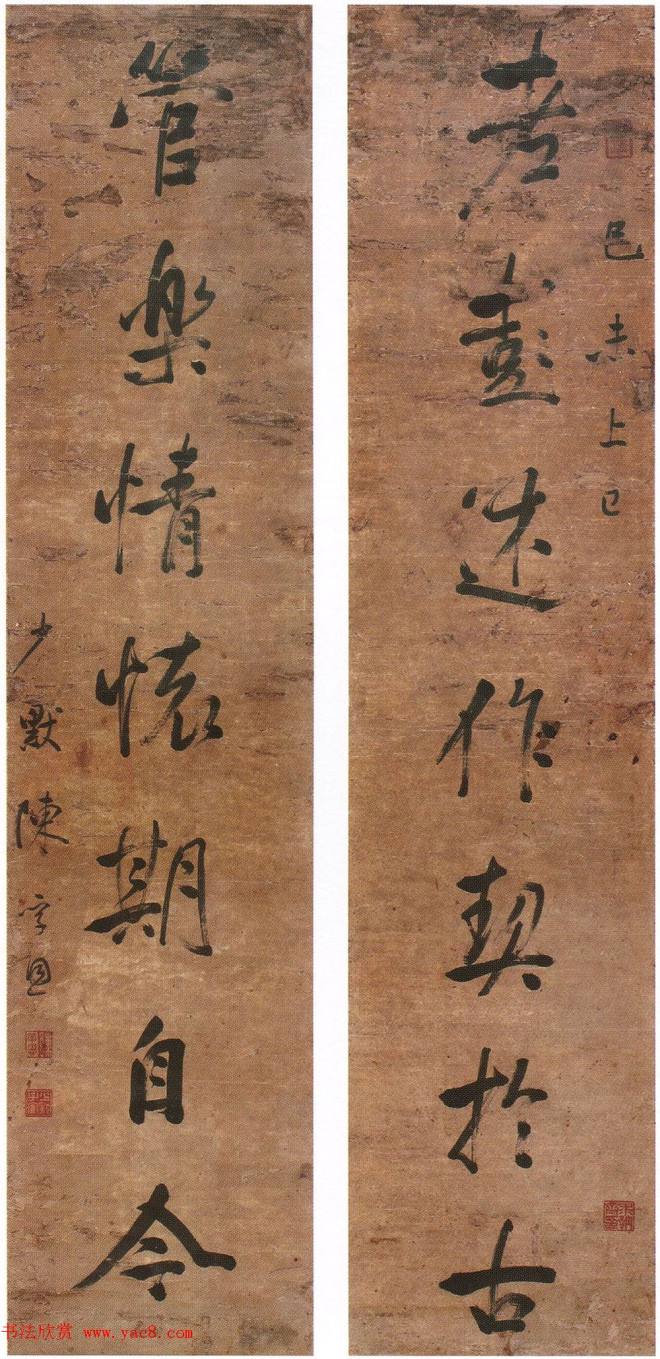 己未上巳
老彭述作契於古
管樂情懷期自今
少默陳孚恩
书法欣赏 www.yac8.com